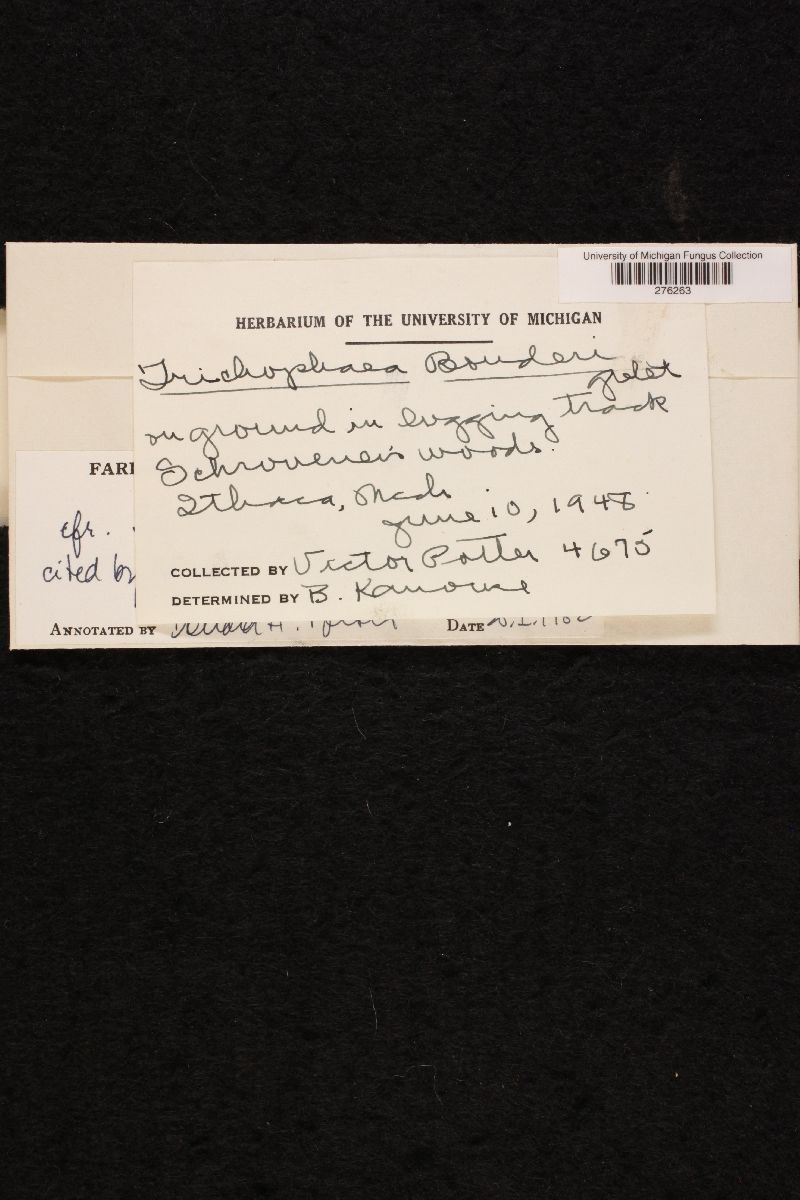 University of Michigan Fungus Collection
276263
HERBARIUM OF THE UNIVERSITY OF MICHIGAN
Trichophaea Bouderi
on ground in logging track
woods.
Ithaca, Mich
June 10, 1948
COLLECTED BY Victor Potter 4675
DETERMINED BY B. Kanouse
FARL
cfr.
cited by
ANNOTATED BY
DATE